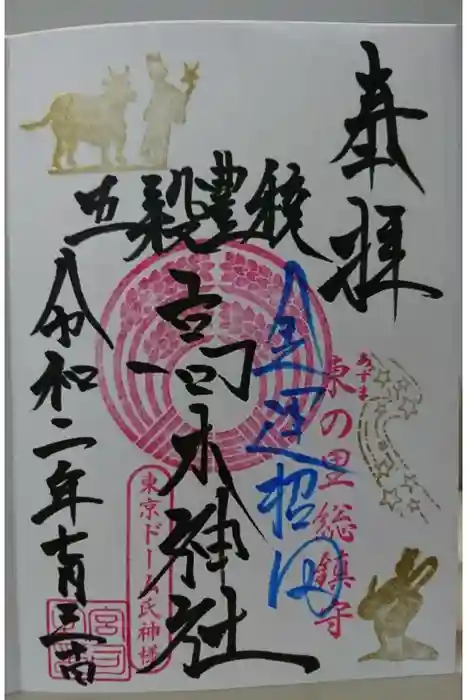 奉拝
東の里総鎮守
あずま
金運招福
五穀豊穣
高木神社
東京ドーム氏神様
令和二年七月三十日